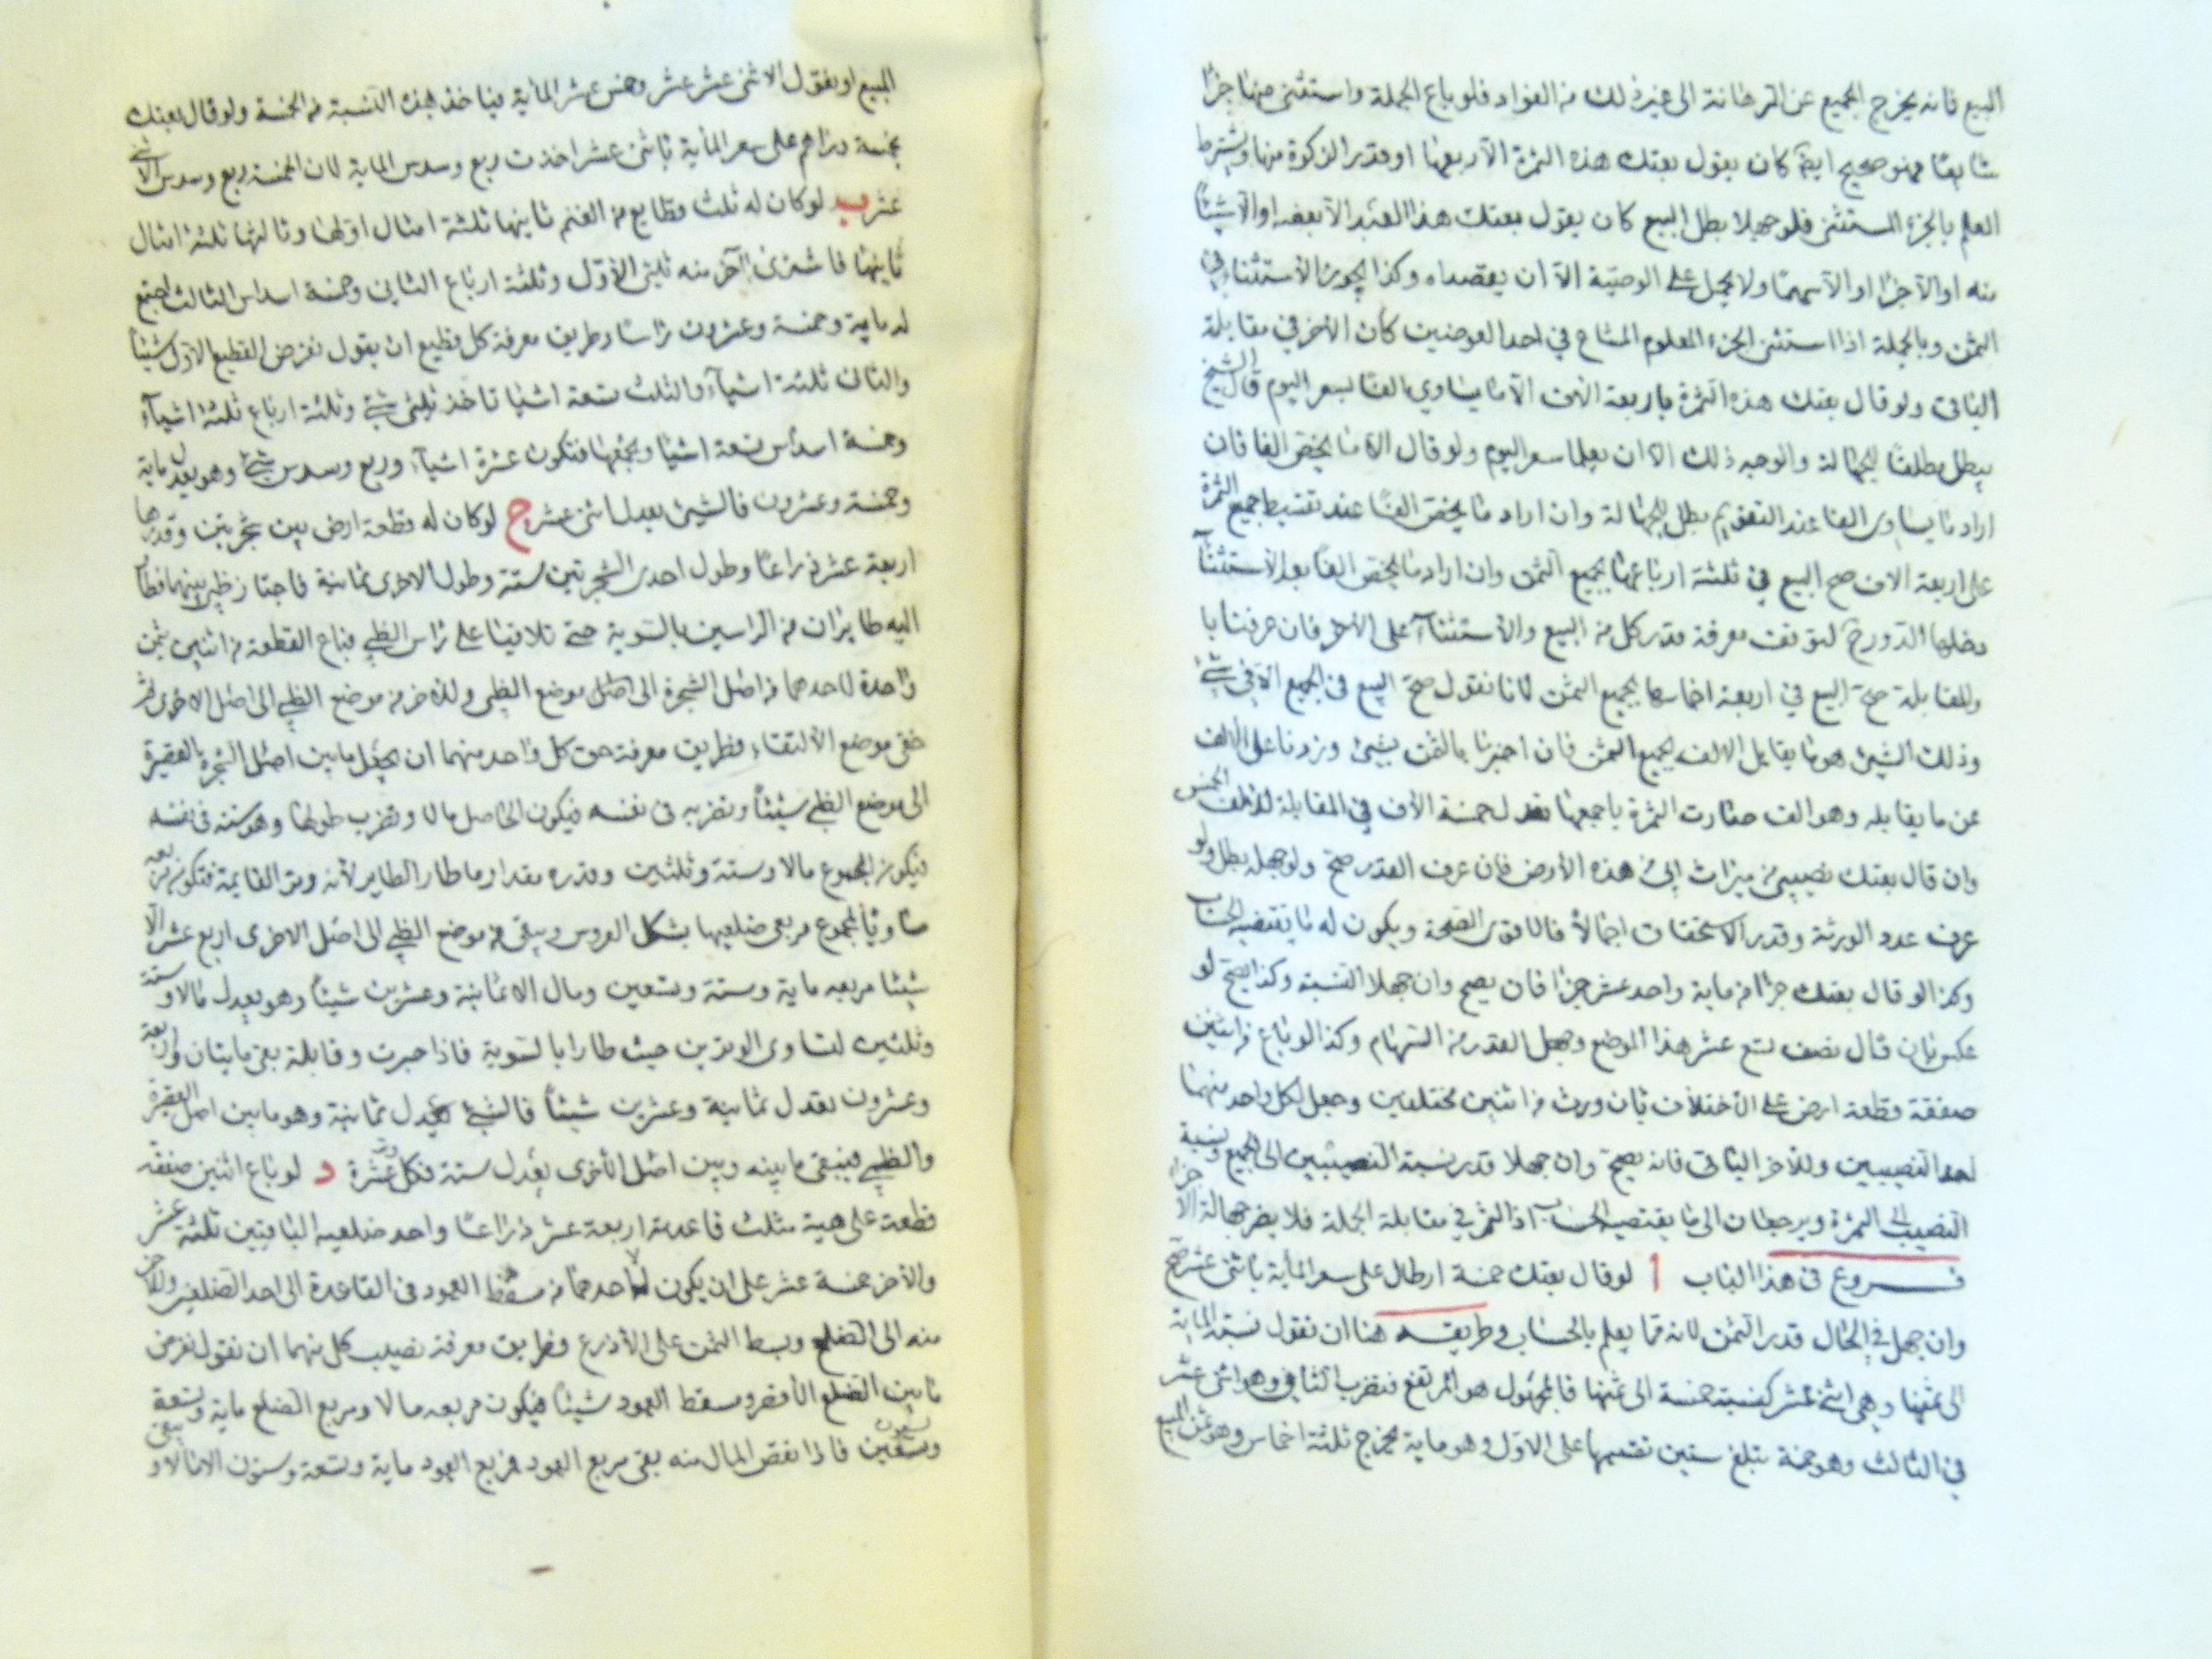 البيع فانه يخرج الجميع عن الترهانة الى غير ذلك من الفواد فلو باع الجملة واستثنى منها جزءا
شايعا فهو صحيح ايضا كان يقول بعتك هذه الثمرة الا ربعها او قدر الزكوة منها ويشترط
العلم بالجزء المستثنى فلو جهلا بطل البيع كان يقول بعتك هذا العبد الا بعضه او الا شيئا
منه او الا جزءا او الا سهما ولا يحمل على الوصية الا ان يقصداه وكذا يجوز الاستثناء في
الثمن وبالجملة اذا استثنى الجزء المعلوم المشاع في احد العوضين كان الاخر في مقابلة
الباقي ولو قال بعتك هذه الثمرة باربعة الاف الا ما يساوي الفا بسعر اليوم قال الشيخ
يبطل مطلقا للجهالة والوجه ذلك الا ان يعلما سعر اليوم ولو قال الا ما يخص الفا فان
اراد ما يساوى الفا عند التقويم بطل للجهالة وان اراد ما يخص الفا عند تقسيط جميع الثمرة
على اربعة الاف صح البيع في ثلثة ارباعها بجميع الثمن وان اراد ما يخص الفا بعد الاستثناء
دخلها الدور لتوقف معرفة قدر كل من البيع والاستثناء على الاخر فان عرفتا با
والمقابلة صح البيع في اربعة اخماسها بجميع الثمن لانا نقول صح البيع في الجميع الا في شئ
وذلك الشيئ هو ما يقابل الالف بجميع الثمن فان اجبرنا بالف بشيئ وزدنا على الالف
ثمن ما يقابله وهو الف صارت الثمرة باجمعها تعدل خمسة الاف في المقابلة للالف الخمس
وان قال بعتك نصيبي من ميراث ابي من هذه الارض فان عرف القدر صح ولو جهله بطل ولو
عرف عدد الورثة وقدر الاستحقاق اجمالا فالاقوى الصحة ويكون له ما يقتضيه الحساب
وكذا لو قال بعتك جزءا من ماية واحد عشر جزءا فان يصح وان جهلا النسبة وكذا يصح لو
عكس بان قال نصف تسع عشر هذا الموضع وجهل القدر من السهام وكذا لو باع من اثنين
صفقة قطعة ارض على الاختلاف بان ورث من اثنين مختلفين وجعل لكل واحد منهما
احد النصيبين وللاخر الباقي فانه يصح وان جهلا قدر نسبة النصيبين الى الجميع ونسبة
النصيب الى الثمرة ويرجعان الى ما يقتضيه الحساب اذ الثمن في مقابلة الجملة فلا يضر جهالة الاجزاء
فروع في هذا الباب ا لو قال بعتك خمسة ارطال على سعر الماية باثنى عشر صح
وان جهل في الحال قدر الثمن لانه مما يعلم بالحساب وطريقه هنا ان نقول نسبة الماية
الى ثمنها وهي اثنى عشر كنسبة خمسة الى ثمنها فالمجهول هو الرابع فنضرب الثاني وهو اثنى عشر
في الثالث وهو خمسة تبلغ ستين نقسمها على الاول وهو ماية يخرج ثلثة اخماس وهو ثمن المبيع
المبيع او نقول الاثنى عشر عشر وخمس عشر الماية فياخذ هذه النسبة من الخمسة ولو قال بعتك
بخمسة دراهم على سعر الماية باثنى عشر اخذت ربع وسدس الماية لان الخمسة ربع وسدس الاثنى
عشر ب لو كان له ثلث قطايع من الغنم ثانيها ثلثة امثال اولها وثالثها ثلثة امثال
ثانيها فاشترى اخر منه ثلثي الاول وثلثة ارباع الثاني وخمسة اسداس الثالث اجتمع
له ماية وخمسة وعشرون راسا وطريق معرفة كل قطيع ان يقول نفرض القطيع الاول شيئا
والثاني ثلثة اشياء والثلث تسعة اشيا تاخذ ثلثي شئ وثلثة ارباع ثلثة اشياء
وخمسة اسداس تسعة اشيا ويجمعها فتكون عشرة اشياء وربع وسدس شئ وهو يعدل ماية
وخمسة وعشرون فالشيئ يعدل اثنى عشر ج لو كان له قطعة ارض بين شجرتين وقدرها
اربعة عشر ذراعا وطول احدى الشجرتين ستة وطول الاخرى ثمانية فاجتاز ظبي بينهما فطار
اليه طايران من الراسين بالسوية حتى تلاقيا على راس الظبي فباع القطعة من اثنين بثمن
واحدة لاحدهما من اصل الشجرة الى اصل موضع الظبي وللاخر من موضع الظبي الى اصل الاخرى
خفى موضع الالتقاء فطريق معرفة حق كل واحد منهما ان يجعل ما بين اصل الشجرة القصيرة
الى موضع الظبي شيئا ونضربه في نفسه فيكون الحاصل مالا ونضرب طولها وهو ستة في نفسه
فيكون المجموع مالا وستة وثلثين وقدره مقدار ما طار الطاير لانه وتر القايمة فتكون مربعه
مساويا لمجموع مربعى ضلعيها بشكل العروس ويبقى من موضع الظبي الى اصل الاخرى اربع عشر الا
شيئا مربعه ماية وستة وتسعين ومال الا ثمانية وعشرين شيئا وهو يعدل مالا وستة
وثلثين لتساوى الوترين حيث طارا بالسوية فاذا جبرت وقابلة بقى مايتان واربعة
وعشرون تعدل ثمانية وعشرين شيئا فالشئ يعدل ثمانية وهو ما بين اصل القصيرة
والظبي فيبقى ما بينه وبين اصل الاخرى يعدل ستة فكل وتر عشرة د لو باع اثنين صفقة
قطعة على هيئة مثلث قاعدته اربعة عشر ذراعا واحد ضلعيه الباقيين ثلثة عشر
والاخر خمسة عشر على ان يكون لاحدهما من مسقط العمود في القاعدة الى احد الضلعين وللاخر
منه الى الضلع وبسط الثمن على الاذرع فطريق معرفة نصيب كل منهما ان نقول نفرض
ما بين الضلع الاقصر ومسقط العمود شيئا فيكون مربعه مالا ومربع الضلع ماية وتسعة
وستين فاذا نقص المال منه بقى مربع العمود فمربع العمود ماية وتسعة وستون الا مالا ويبقى